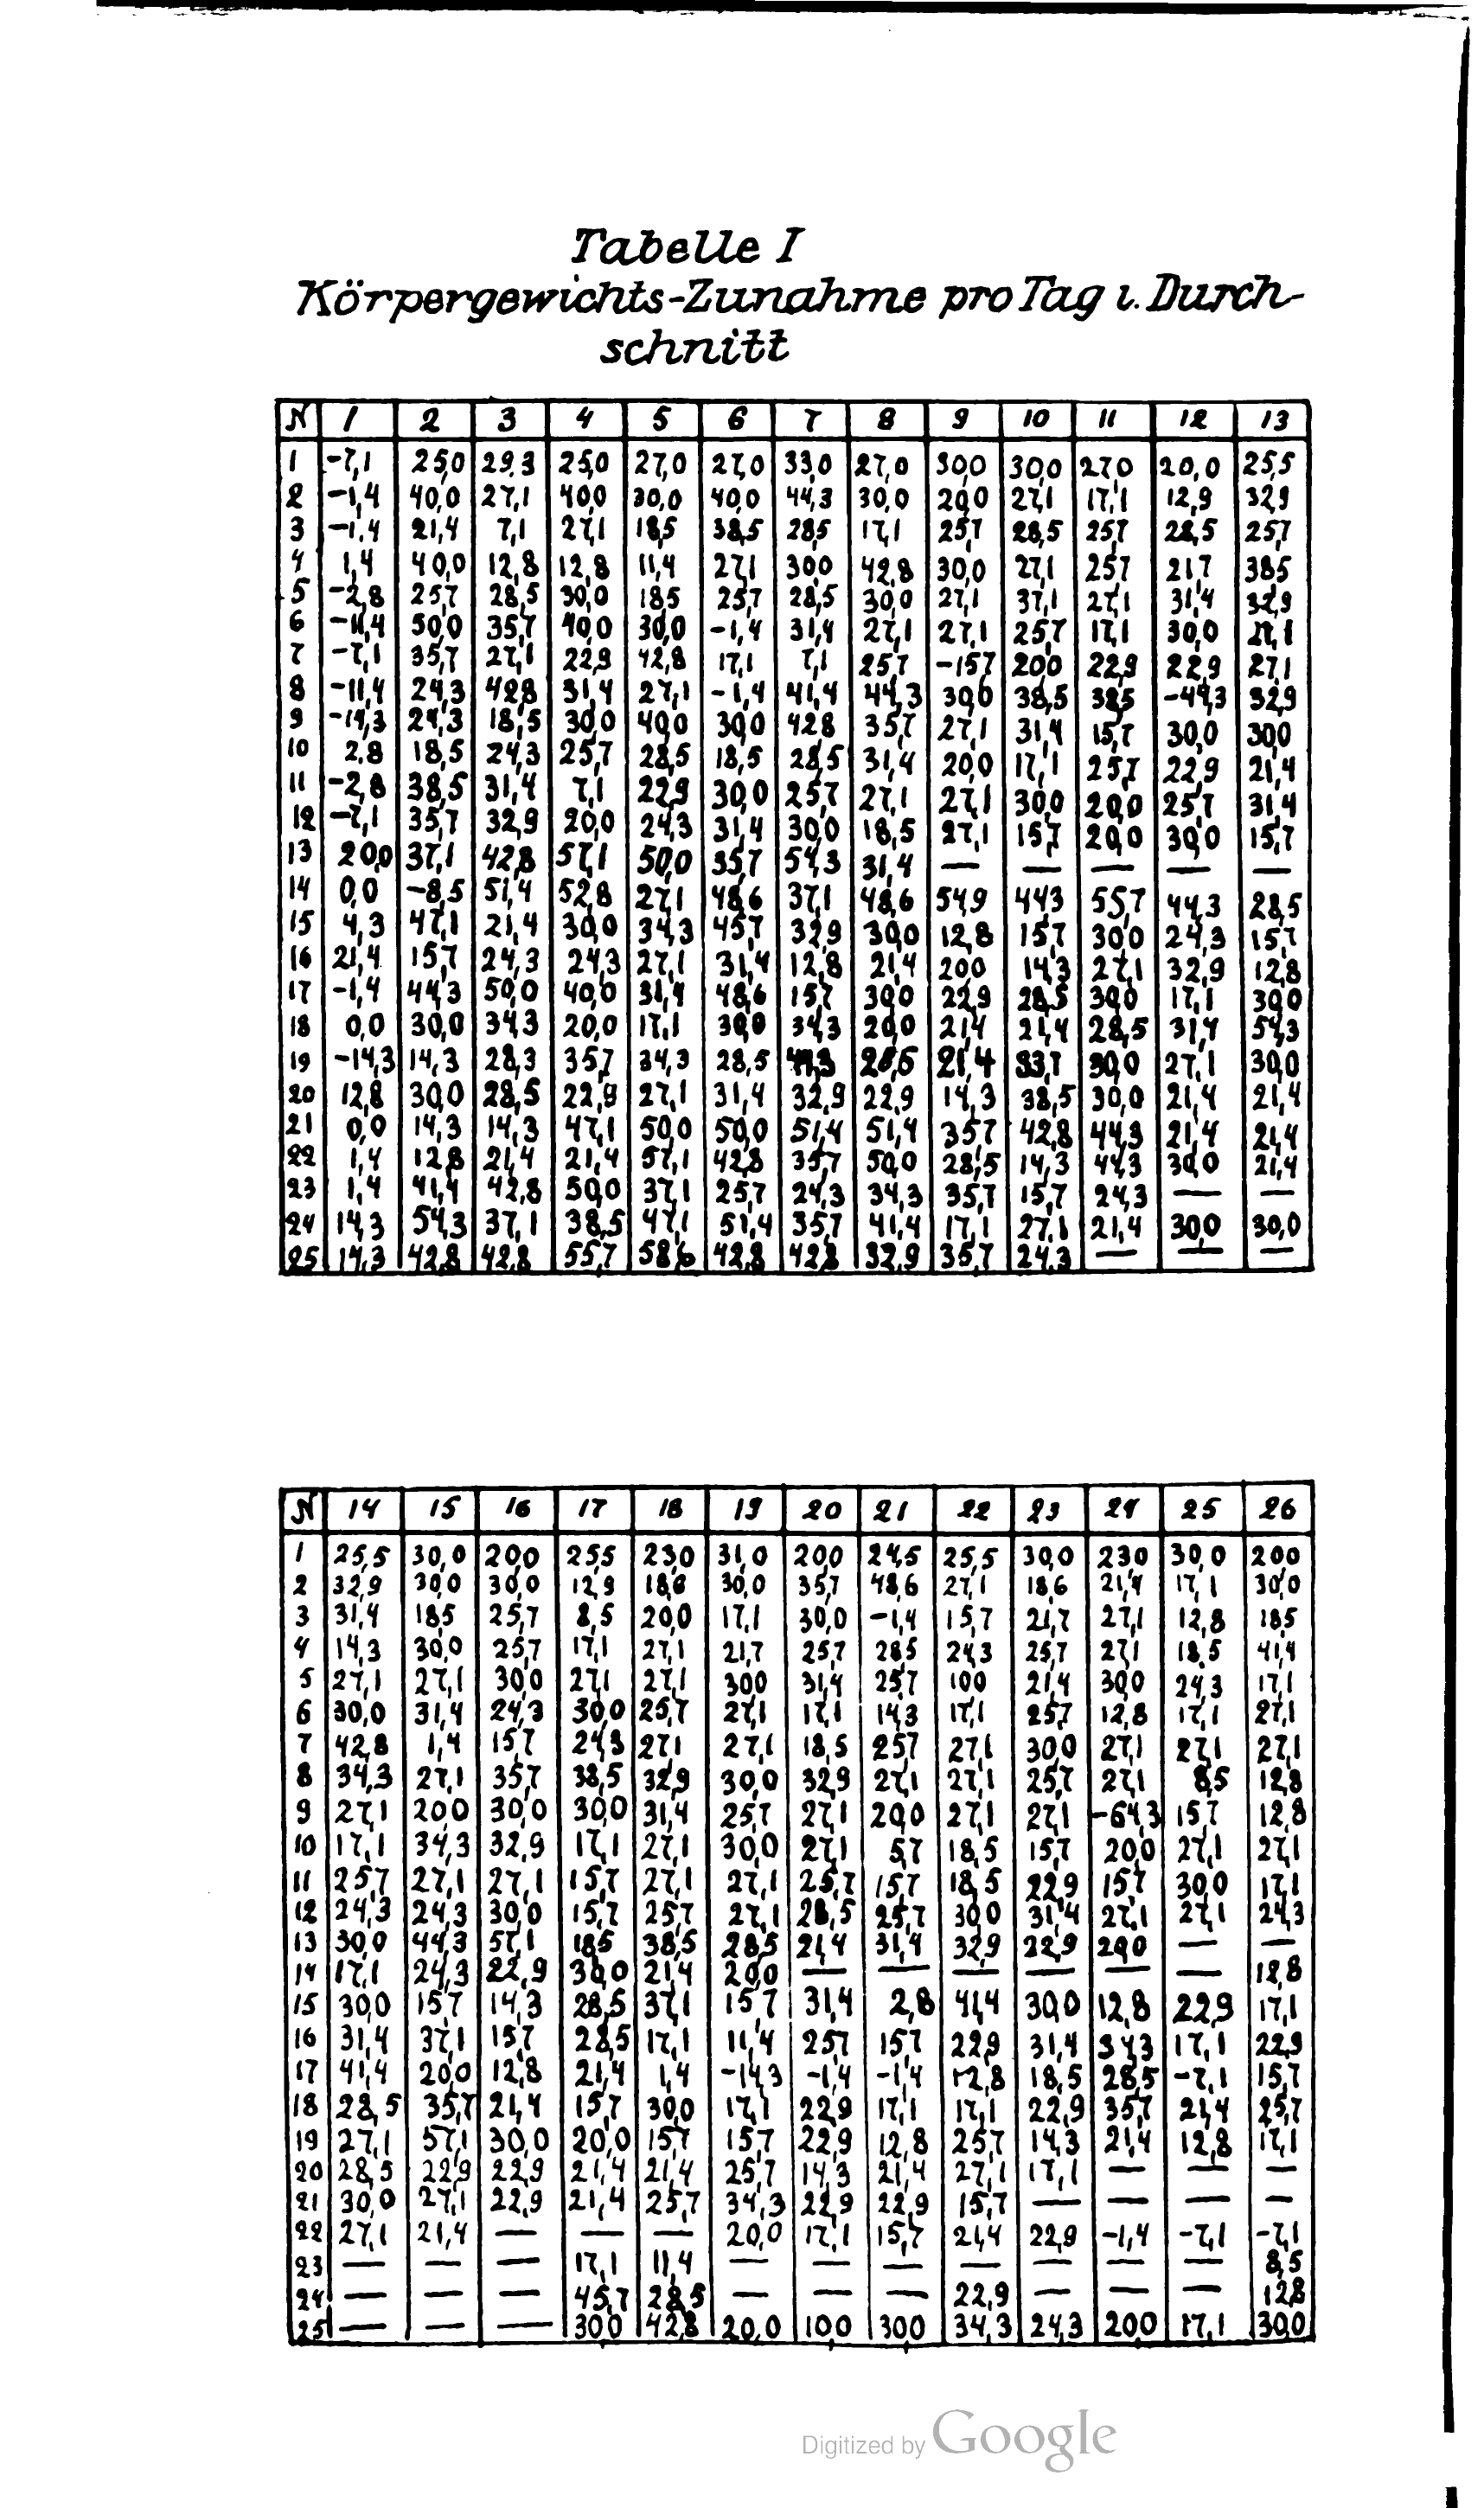 Tabelle I
Körpergewichts-Zunahme pro Tag i. Durch-
schnitt
N 1 2 3 4 5 6 7 8 9 10 11 12 13
1 -7,1 25,0 29,3 25,0 27,0 27,0 33,0 27,0 30,0 30,0 27,0 20,0 25,5
2 -1,4 40,0 27,1 40,0 30,0 40,0 44,3 30,0 20,0 27,1 17,1 12,9 32,9
3 -1,4 21,4 7,1 27,1 18,5 38,5 28,5 17,1 25,7 28,5 25,7 28,5 25,7
4 1,4 40,0 12,8 12,8 11,4 27,1 30,0 42,8 30,0 27,1 25,7 21,7 38,5
5 -2,8 25,7 28,5 30,0 18,5 25,7 28,5 30,0 27,1 37,1 27,1 31,4 32,9
6 -11,4 50,0 35,7 40,0 30,0 -1,4 31,4 27,1 27,1 25,7 17,1 30,0 27,1
7 -7,1 35,7 27,1 22,9 42,8 17,1 7,1 25,7 -15,7 20,0 22,9 22,9 27,1
8 -11,4 24,3 42,8 31,4 27,1 -1,4 41,4 44,3 30,0 38,5 38,5 -44,3 32,9
9 -14,3 24,3 18,5 30,0 40,0 30,0 42,8 35,7 27,1 31,4 15,7 30,0 30,0
10 2,8 18,5 24,3 25,7 28,5 18,5 28,5 31,4 20,0 17,1 25,7 22,9 21,4
11 -2,8 38,5 31,4 7,1 22,9 30,0 25,7 27,1 27,1 30,0 20,0 25,7 31,4
12 -7,1 35,7 32,9 20,0 24,3 31,4 30,0 18,5 27,1 15,7 20,0 30,0 15,7
13 20,0 37,1 42,8 57,1 50,0 35,7 54,3 31,4 — — — — —
14 0,0 -8,5 51,4 52,8 27,1 48,6 37,1 48,6 54,9 44,3 55,7 44,3 28,5
15 4,3 47,1 21,4 30,0 34,3 45,7 32,9 30,0 12,8 15,7 30,0 24,3 15,7
16 21,4 15,7 24,3 24,3 27,1 31,4 12,8 21,4 20,0 14,3 27,1 32,9 12,8
17 -1,4 44,3 50,0 40,0 31,4 48,6 15,7 30,0 22,9 28,5 30,0 17,1 30,0
18 0,0 30,0 34,3 20,0 17,1 30,0 34,3 20,0 21,4 21,4 28,5 31,4 54,3
19 -14,3 14,3 28,3 35,7 34,3 28,5 21,4 30,0 27,1 30,0
20 12,8 30,0 28,5 22,9 27,1 31,4 32,9 22,9 14,3 38,5 30,0 21,4 21,4
21 0,0 14,3 14,3 47,1 50,0 50,0 51,4 51,4 35,7 42,8 44,3 21,4 21,4
22 1,4 12,8 21,4 21,4 57,1 42,8 35,7 50,0 28,5 14,3 44,3 30,0 21,4
23 1,4 41,4 42,8 50,0 37,1 25,7 24,3 34,3 35,7 15,7 24,3 — —
24 14,3 54,3 37,1 38,5 47,1 51,4 35,7 41,4 17,1 27,1 21,4 30,0 30,0
25 14,3 42,8 42,8 55,7 58,6 42,8 42,8 32,9 35,7 24,3 — — —
N 14 15 16 17 18 19 20 21 22 23 24 25 26
1 25,5 30,0 20,0 25,5 23,0 31,0 20,0 24,5 25,5 30,0 23,0 30,0 20,0
2 32,9 30,0 30,0 12,9 18,6 30,0 35,7 48,6 27,1 18,6 21,4 17,1 30,0
3 31,4 18,5 25,7 8,5 20,0 17,1 30,0 -1,4 15,7 21,7 27,1 12,8 18,5
4 14,3 30,0 25,7 17,1 27,1 21,7 25,7 28,5 24,3 25,7 27,1 18,5 41,4
5 27,1 27,1 30,0 27,1 27,1 30,0 31,4 25,7 10,0 21,4 30,0 24,3 17,1
6 30,0 31,4 24,3 30,0 25,7 27,1 17,1 14,3 17,1 25,7 12,8 17,1 27,1
7 42,8 1,4 15,7 24,3 27,1 27,1 18,5 25,7 27,1 30,0 27,1 27,1 27,1
8 34,3 27,1 35,7 38,5 32,9 30,0 32,9 27,1 27,1 25,7 27,1 8,5 12,8
9 27,1 20,0 30,0 30,0 31,4 25,7 27,1 20,0 27,1 27,1 -64,3 15,7 12,8
10 17,1 34,3 32,9 17,1 27,1 30,0 27,1 5,7 18,5 15,7 20,0 27,1 27,1
11 25,7 27,1 27,1 15,7 27,1 27,1 25,7 15,7 18,5 22,9 15,7 30,0 17,1
12 24,3 24,3 30,0 15,7 25,7 27,1 28,5 25,7 30,0 31,4 27,1 27,1 24,3
13 30,0 44,3 57,1 18,5 38,5 28,5 21,4 31,4 32,9 22,9 20,0 — —
14 17,1 24,3 22,9 30,0 21,4 20,0 — — — — — — 12,8
15 30,0 15,7 14,3 28,5 37,1 15,7 31,4 2,8 41,4 30,0 12,8 22,9 17,1
16 31,4 37,1 15,7 28,5 17,1 11,4 25,7 15,7 22,9 31,4 34,3 17,1 22,9
17 41,4 20,0 12,8 21,4 1,4 -14,3 -1,4 -1,4 12,8 18,5 28,5 -7,1 15,7
18 28,5 35,7 21,4 15,7 30,0 17,1 22,9 17,1 17,1 22,9 35,7 21,4 25,7
19 27,1 57,1 30,0 20,0 15,7 15,7 22,9 12,8 25,7 14,3 21,4 12,8 17,1
20 28,5 22,9 22,9 21,4 21,4 25,7 14,3 21,4 27,1 17,1 — — —
21 30,0 27,1 22,9 21,4 25,7 34,3 22,9 22,9 15,7 — — — —
22 27,1 21,4 — — — 20,0 17,1 15,7 21,4 22,9 -1,4 -7,1 -7,1
23 — — — 17,1 11,4 — — — — — — — 8,5
24 — — — 45,7 28,5 — — — 22,9 — — — 12,8
25 — — — 30,0 42,8 20,0 10,0 30,0 34,3 24,3 20,0 17,1 30,0
Digitized by Google